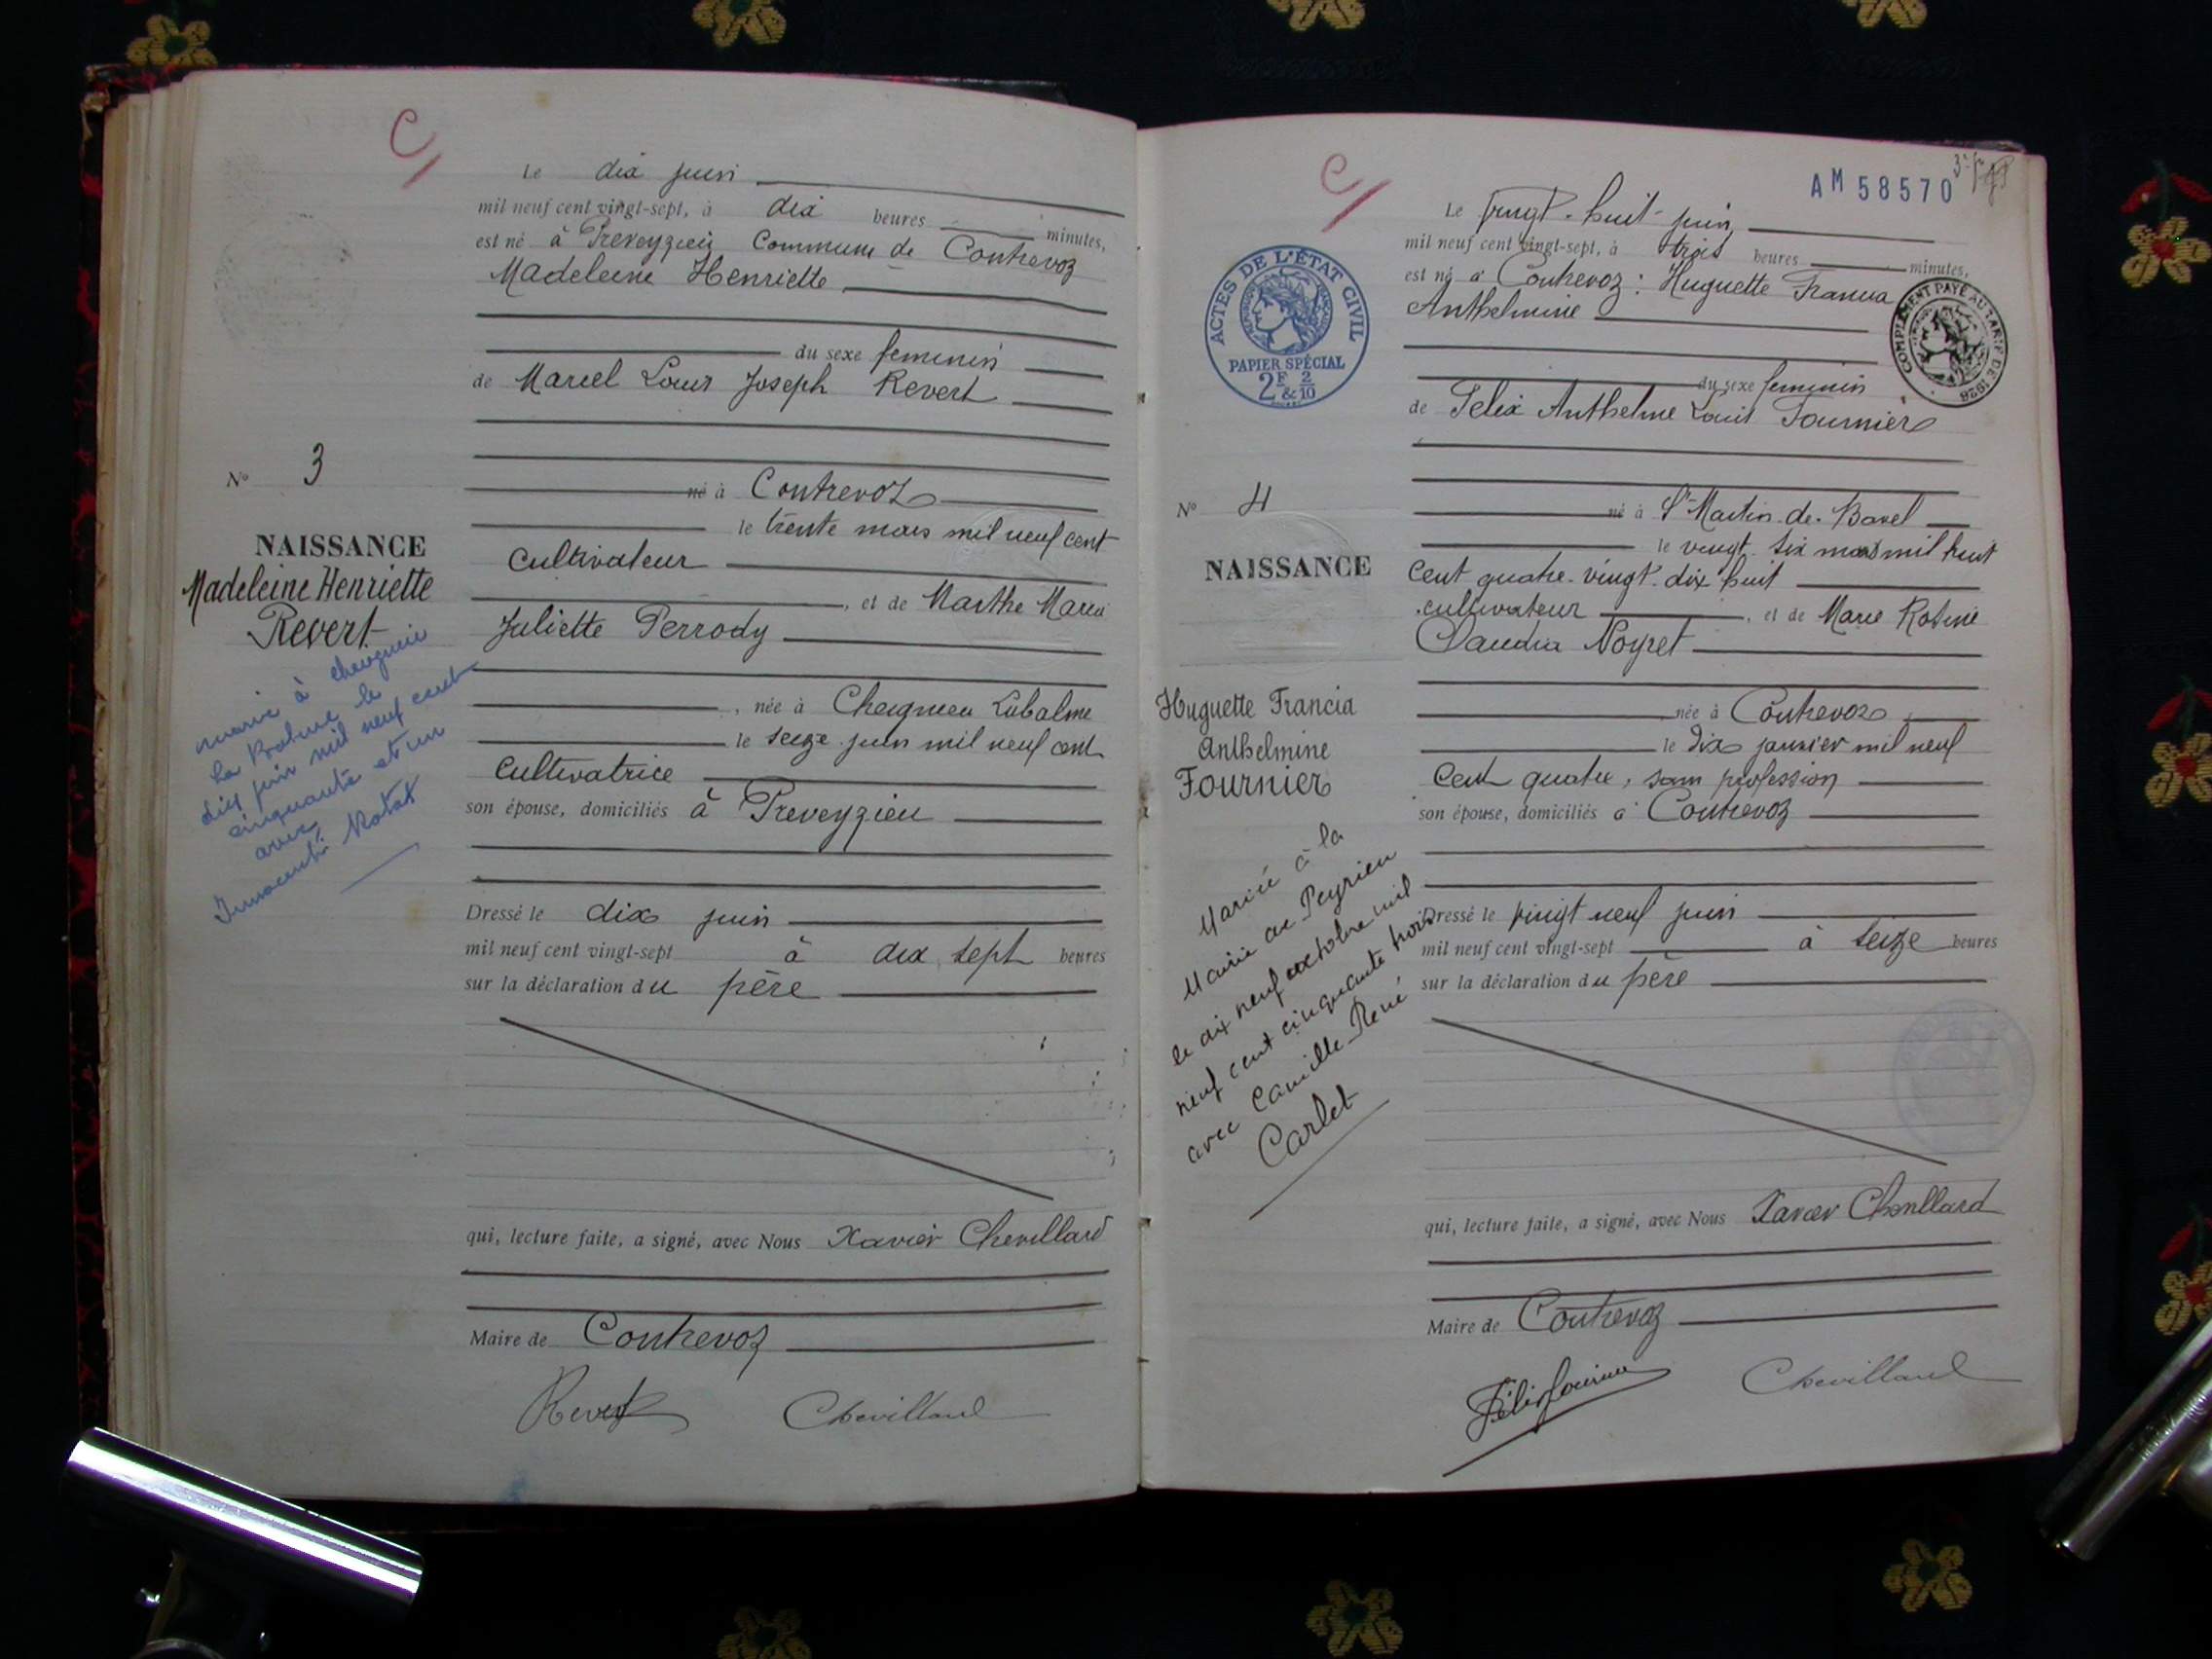 C/
Le dix juin
mil neuf cent vingt-sept, à dix heures minutes,
est né à Preveyzieu Commune de Contrevoz
Madeleine Henriette
du sexe feminin
de Marcel Louis Joseph Revert
né à Contrevoz
le trente mars mil neuf cent
cultivateur
, et de Marthe Maria
Juliette Perrody
, née à Cheignieu Labalme
le seize juin mil neuf cent
cultivatrice
son épouse, domiciliés à Preveyzieu
Dressé le dix juin
mil neuf cent vingt-sept à dix sept heures
sur la déclaration du père
qui, lecture faite, a signé, avec Nous Xavier Chevillard
Maire de Contrevoz
Revert Chevillard
No 3
NAISSANCE
Madeleine Henriette
Revert
à
la le
dix juin mil neuf cent
cinquante et un
avec
C/
AM 58570
Le vingt-huit-juin
mil neuf cent vingt-sept, à trois heures minutes,
est né à Contrevoz : Huguette Francia
Anthelmine
du sexe feminin
de Felix Anthelme Louis Fournier
né à St Martin-de-Bavel
le vingt-six mars mil huit
cent quatre-vingt-dix huit
cultivateur , et de Marie
Claudia
née à Contrevoz
le dix janvier mil neuf
cent quatre, sans profession
son épouse, domiciliés à Contrevoz
Dressé le vingt neuf juin
mil neuf cent vingt-sept à seize heures
sur la déclaration du père
qui, lecture faite, a signé, avec Nous Xavier Chevillard
Maire de Contrevoz
Félix Fournier Chevillard
ACTES DE L'ÉTAT CIVIL
PAPIER SPÉCIAL
2F & 2/10
COMPLÉMENT PAYÉ AU TARIF DE 1926
No 4
NAISSANCE
Huguette Francia
Anthelmine
Fournier
Mariée à la
Mairie de Peyrieu
le dix neuf octobre mil
neuf cent cinquante trois
avec Camille-René
Carlet